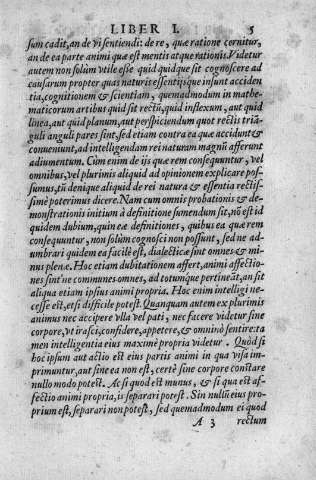 LIBER I. 5
sum cadit, an de vi sentiendi: de re, quæ ratione cernitur,
an de ea parte animi quæ est mentis atque rationis. Videtur
autem non solùm vtile esse quid quidque sit cognoscere ad
causarum propter quas naturis essentijsque insunt acciden
tia, cognitionem & scientiam, quemadmodum in mathe-
maticorum artibus quid sit rectũ, quid inflexum, aut quid
linea, aut quid planum, aut perspiciendum quot rectis triã-
guli anguli pares sint, sed etiam contra ea quæ accidunt &
conueniunt, ad intelligendam rei naturam magnũ afferunt
adiumentum. Cùm enim de ijs quæ rem consequuntur, vel
omnibus, vel plurimis aliquid ad opinionem explicare pos-
sumus, tũ denique aliquid de rei natura & essentia rectis-
simè poterimus dicere. Nam cum omnis probationis & de-
monstrationis initium à definitione sumendum sit, nõ est id
quidem dubium, quin eæ definitiones, quibus ea quæ rem
consequuntur, non solùm cognosci non possunt, sed ne ad-
umbrari quidem ea facilè est, dialecticæ sint omnes & mi-
nus plenæ. Hoc etiam dubitationem affert, animi affectio-
nes sint ne communes omnes, ad totumque pertineãt, an sit
aliqua etiam ipsius animi propria. Hoc enim intelligi ne-
cesse est, etsi difficile potest. Quanquam autem ex plurimis
animus nec accipere vlla vel pati, nec facere videtur sine
corpore, vt irasci, confidere, appetere, & omninò sentire: ta
men intelligentia eius maximè propria videtur. Quòd si
hoc ipsum aut actio est eius partis animi in qua visa im-
primuntur, aut sine ea non est, certè sine corpore constare
nullo modo potest. Ac si quod est munus, & si qua est af-
fectio animi propria, is separari potest. Sin nullũ eius pro-
prium est, separari non potest, sed quemadmodum ei quod
A 3 rectum